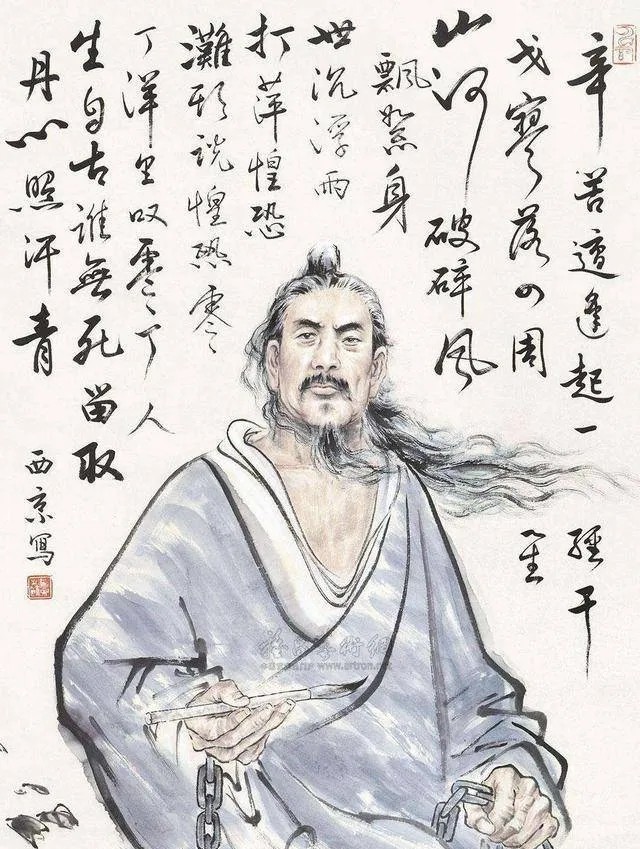 辛苦遭逢起一經干
戈寥落四周星
山河破碎風
飄絮身
世沉浮雨
打萍惶恐
灘頭説惶恐零
丁洋里叹零丁人
生自古誰無死留取
丹心照汗青
西京寫
www.artron.net